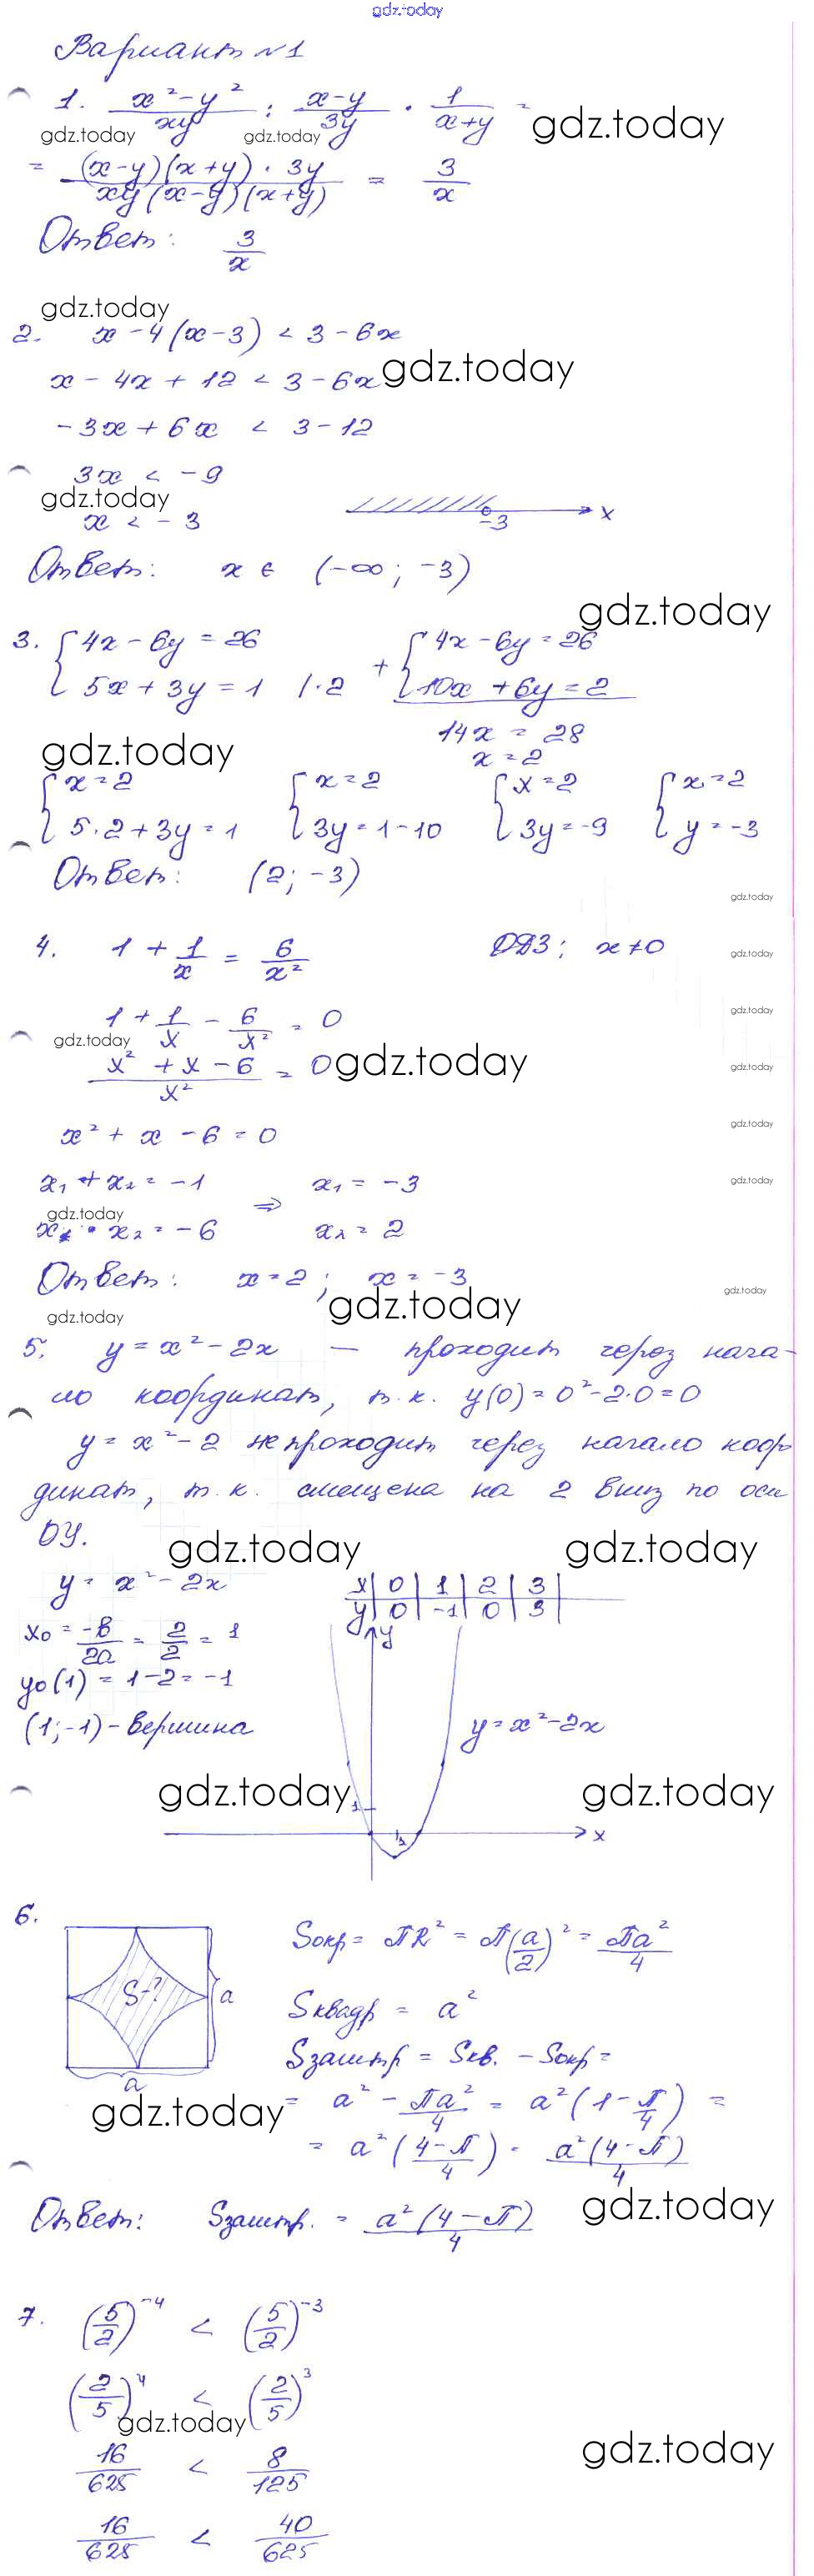 gdz.today
Вариант №1
1. (x²-y²)/(xy) : (x-y)/(3y) · 1/(x+y) =
gdz.today gdz.today gdz.today
= ((x-y)(x+y)·3y)/(xy(x-y)(x+y)) = 3/x
Ответ: 3/x
gdz.today
2. x-4(x-3) < 3-6x
x-4x+12 < 3-6x gdz.today
-3x+6x < 3-12
3x < -9
gdz.today
x < -3 -3 x
Ответ: x ∈ (-∞; -3)
gdz.today
3. { 4x-6y=26 + { 4x-6y=26
5x+3y=1 |·2 10x+6y=2
14x = 28
gdz.today x=2
{ x=2 { x=2 { x=2 { x=2
5·2+3y=1 3y=1-10 3y=-9 y=-3
Ответ: (2; -3)
gdz.today
4. 1 + 1/x = 6/x² ОДЗ: x≠0
gdz.today
gdz.today
1 + 1/x - 6/x² = 0
gdz.today
(x²+x-6)/x² = 0 gdz.today
gdz.today
gdz.today
x²+x-6=0
gdz.today
x₁+x₂=-1 x₁=-3
gdz.today ⇒
x₁·x₂=-6 x₂=2
Ответ: x=2; x=-3
gdz.today gdz.today gdz.today
5. y=x²-2x — проходит через нача-
ло координат, т.к. y(0)=0²-2·0=0
y=x²-2 не проходит через начало коор
динат, т.к. смещена на 2 вниз по оси
ОУ.
gdz.today gdz.today
y=x²-2x x 0 1 2 3
y 0 -1 0 3
x₀ = -в/2a = 2/2 = 1 y
y₀(1)=1-2=-1
(1;-1)-вершина y=x²-2x
gdz.today gdz.today
1
1 x
6. Sокр = πR² = π(a/2)² = πa²/4
S-? a Sквадр = a²
Sзаштр = Sкв. - Sокр =
a
gdz.today = a² - πa²/4 = a²(1-π/4) =
= a²((4-π)/4) = a²(4-π)/4
Ответ: Sзаштр. = a²(4-π)/4 gdz.today
7. (5/2)⁻⁴ < (5/2)⁻³
(2/5)⁴ < (2/5)³
gdz.today gdz.today
16/625 < 8/125
16/625 < 40/625